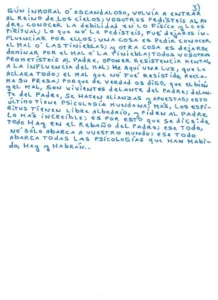 3)
GÚN INMORAL O ESCANDALOSO, VOLVIA A ENTRAR
AL REINO DE LOS CIELOS; VOSOTROS PEDISTEIS AL PA-
DRE, CONOCER LA DEBILIDAD EN LO FÍSICO Y LO ES-
PIRITUAL; LO QUE NO LE PEDISTEIS, FUE DEJAROS IN-
FLUENCIAR POR ELLOS; UNA COSA ES PEDIR CONOCER
EL MAL O LAS TINIEBLAS; Y OTRA COSA ES DEJARSE
DOMINAR POR EL MAL O LA TINIEBLA; TODOS VOSOTROS
PROMETISTEIS AL PADRE, OPONER RESISTENCIA MENTAL
A LA INFLUENCIA DEL MAL; HE AQUÍ UNA LUZ, QUE LO
ACLARA TODO; EL MAL QUE NO FUE RESISTIDO, RECLA-
MA SU PRESA; PORQUE DE VERDAD OS DIGO, QUE EL BIEN
Y EL MAL, SON VIVIENTES DELANTE DEL PADRE; DELAN-
TE DEL PADRE, SE HACEN ALIANZAS Y APUESTAS; ESTO
ÚLTIMO TIENE PSICOLOGÍA MUNDANA; MAS, LOS ESPÍ-
RITUS TIENEN LIBRE ALBEDRÍO, Y PIDEN AL PADRE
LO MÁS INCREÍBLE; ES POR ESTO QUE SE DICE: DE
TODO HAY EN EL REBAÑO DEL PADRE; ESE TODO,
NO SÓLO ABARCA A VUESTRO MUNDO; ESE TODO
ABARCA TODAS LAS PSICOLOGÍAS QUE HAN HABI-
DO, HAY Y HABRÁN.-